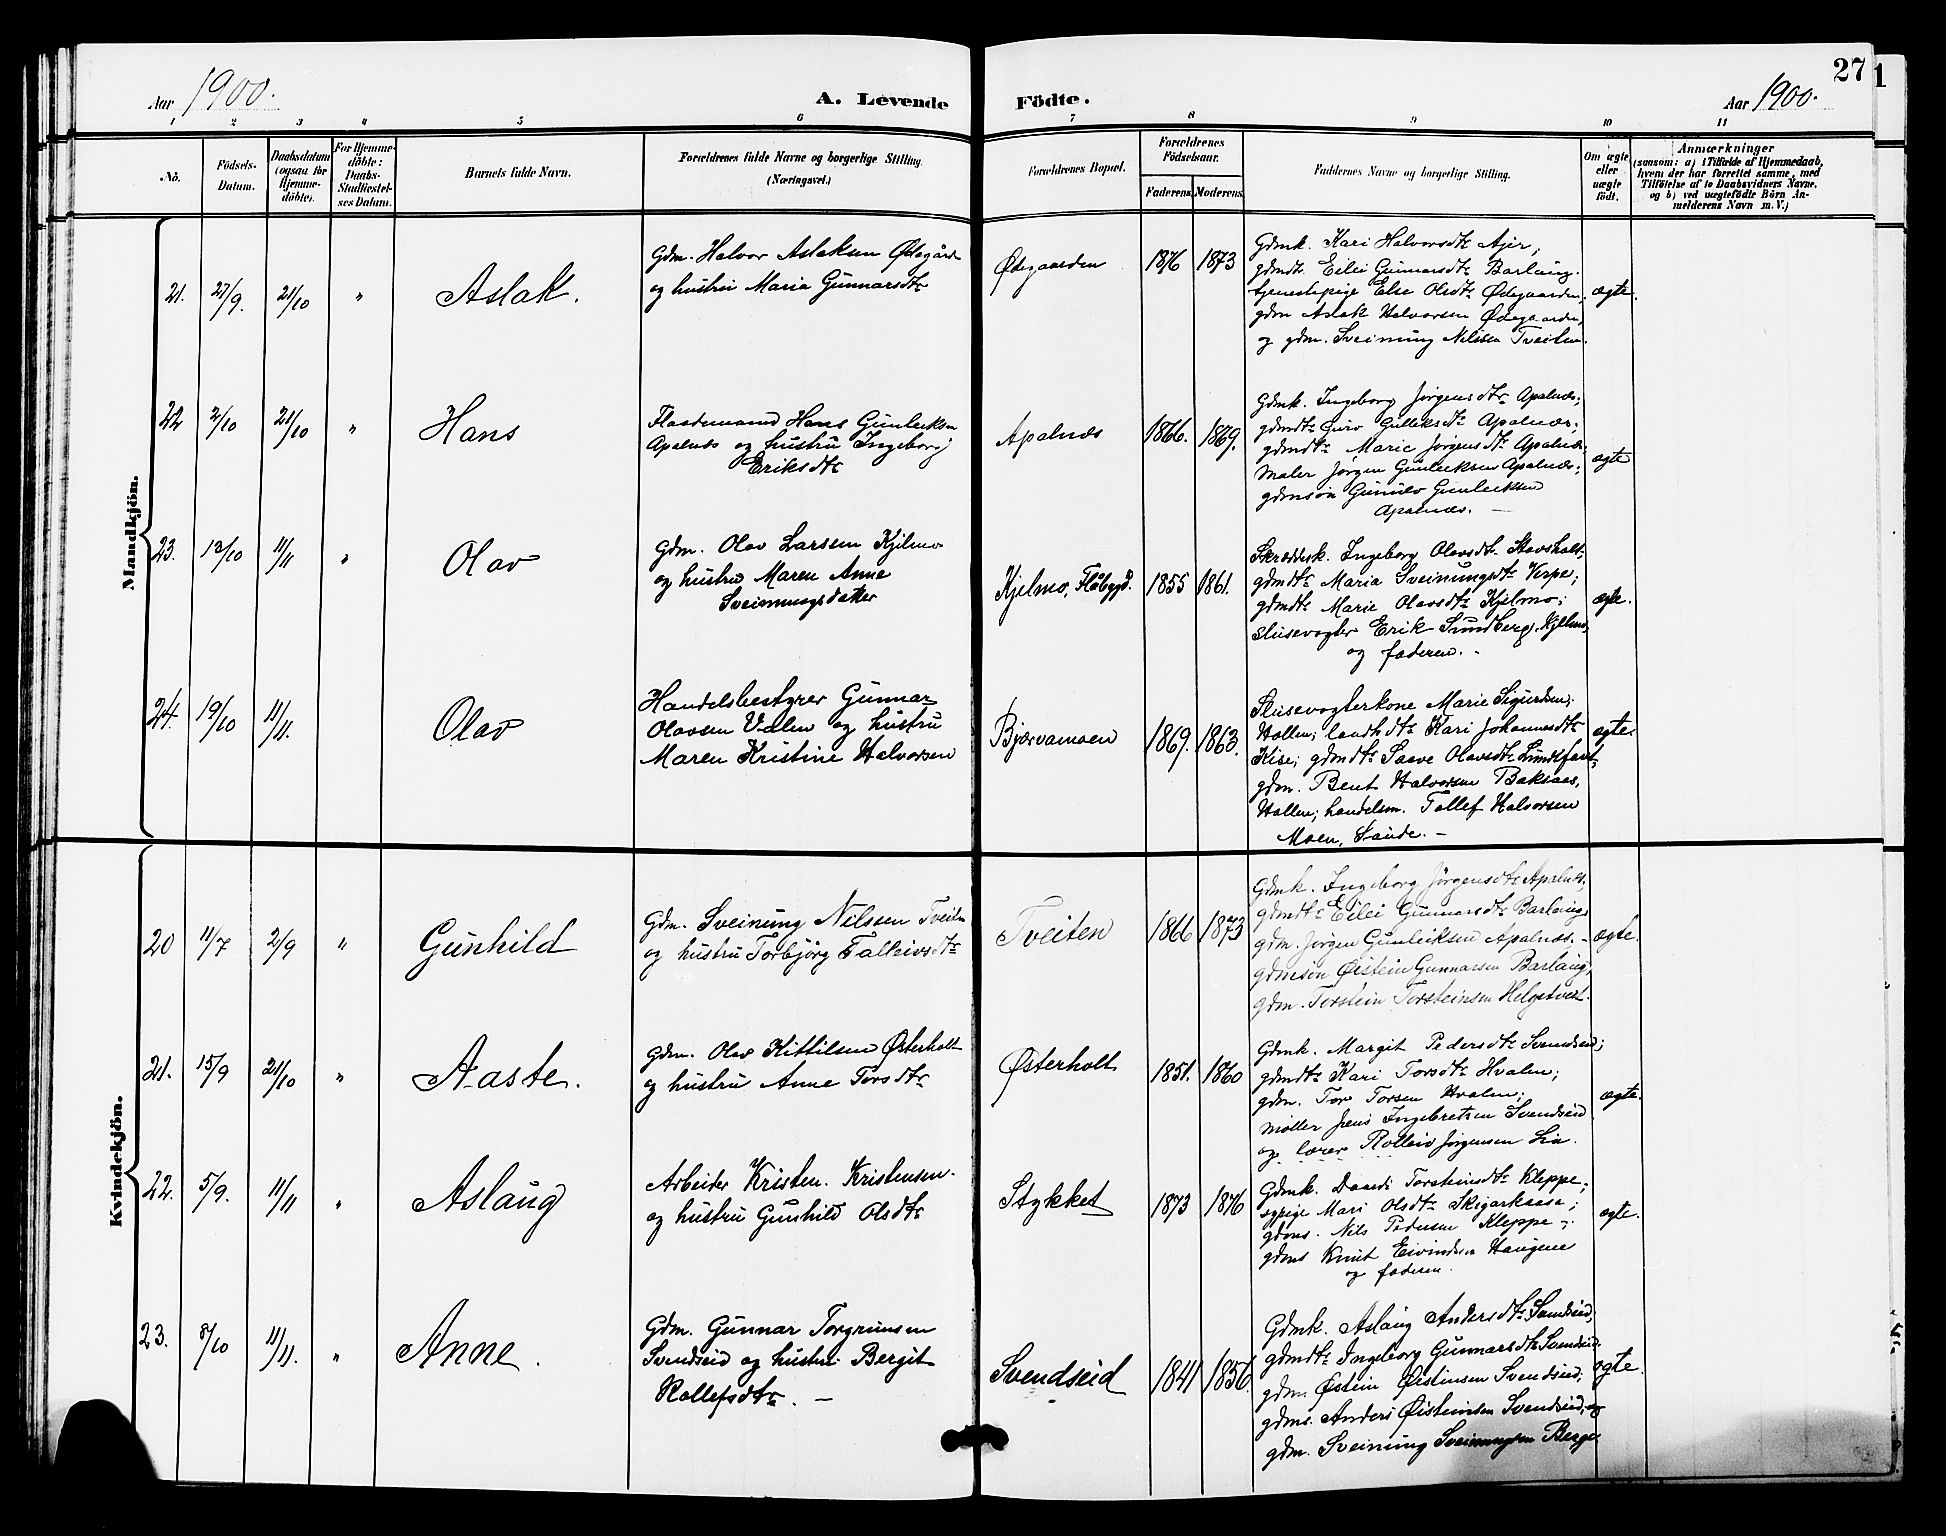 27
1
Aar 1900.
A. Levende
Födte.
Aar 1900.
1 2 3 4 5 6 7 8 9 10 11
No.
Födsels-
Datum.
Daabsdatum
(ogsaa for
Hjemme-
döbte).
For Hjemme-
döbte:
Daabs-
Stadfæstel-
ses Datum.
Barnets fulde Navn.
Forældrenes fulde Navne og borgerlige Stilling
(Næringsvei.)
Forældrenes Bopæl.
Forældrenes
Födselsaar.
Faderens.
Moderens.
Faddernes Navne og borgerlige Stilling.
Om ægte
eller
uægte
födt.
Anmærkninger
(saasom: a) i Tilfælde af Hjemmedaab,
hvem der har forrettet samme, med
Tilföielse af to Daabsvidners Navne,
og b) ved uægtefödte Börn An-
melderens Navn m. V.)
Mandkjön.
21. 27/9. 21/10 " Aslak.
Gdm. Halvor Aslaksen Ødegård
og hustru Maria Gunnarsdtr
Ødegaarden 1876 1873
Gdmk. Kari Halvorsdtr Ajer,
gdmdtr. Eilei Gunnarsdtr Barlaug.
tjenestepige Else Olsdtr Ødegaarden,
gdm Aslak Halvorsen Ødegaarden,
og gdm. Sveinung Nilssen Tveiten.
ægte.
22 2/10 21/10 " Hans
Hans Gunleiksen
Apalnæs og hustru Ingeborg
Eriksdtr
Apalnæs 1866. 1869.
Gdmk. Ingeborg Jørgensdtr Apalnæs;
gdmdtr Guro Gulleiksdtr Apalnæs;
gdmdtr Marie Jørgensdtr Apalnæs;
maler Jørgen Gunleiksen Apalnæs;
gdmsøn Gunnlev Gunleiksen
Apalnæs. —
ægte
23. 12/10 11/11 " Olav
Gdm. Olav Larssen Kjilmo
og hustru Maren Anne
Sveinungsdatter
Kjelmo, Flåbygd. 1855 1861.
Skrædderk. Ingeborg Olavsdtr Stavsholt.
gdmdtr Maria Sveinungsdtr Verpe;
gdmdtr Marie Olavsdtr Kjelmo;
slusevogter Erik Sundberg, Kjelmo,
og faderen. -
ægte.
24. 19/10 11/11. Olav
Handelsbestyrer Gunnar
Olavsen Valen og hustru
Maren Kristine Halvorsen
Bjervamoen 1869. 1863.
Slusevogterkone Marie Sigurdsen,
Hollen; landhdtr Kari Johannesdtr
Kise; gdmdtr Saave Olavsdtr
gdm. Bent Halvorsen Baksaas,
Hollen; handelsm. Tollef Halvorsen
Moen, Saude. —
ægte.
Kvindekjön.
20 11/7 2/9 " Gunhild
Gdm. Sveinung Nilssen Tveiten
og hustru Torbjörg Talleivsdtr
Tveiten 1866 1873
Gdmk. Ingeborg Jørgensdtr Apalnæs,
gdmdtr Eilei Gunnarsdtr Barlaug,
gdm. Jørgen Gunleiksen Apalnæs. -
gdmsøn Øistein Gunnarsen Barlaug,
gdm. Torstein Torsteinsen Helgetveit.
ægte.
21. 15/9 21/10 " Aaste.
Gdm. Olav Kittilsen Østerholt
og hustru Anne Torsdtr
Østerholt 1851. 1860
Gdmk. Margit Pedersdtr Svendseid;
gdmdtr Kari Torsdtr Hvalen;
gdm. Tor Torsen Hvalen;
møller Jens Ingebretsen Svendseid
og lærer Rolleiv Jørgensen Lia.
ægte.
22. 5/9. 11/11 " Aslaug
Arbeider Kristen Kristensen
og hustru Gunhild Olsdtr
Stykket 1873 1876
Gdmk. Torsteinsdtr Kleppe;
sypige Mari Olsdtr
gdms. Nils Pedersen Kleppe;
gdms Knut Eivindsen Haugene
og faderen.
ægte.
23. 8/10 11/11. " Anne.
Gdm. Gunnar Torgrimsen
Svendseid og hustru Bergit
Rollefsdtr. —
Svendseid 1841 1856.
Gdmk. Aslaug Andersdtr Svendseid;
gdmdtr Ingeborg Gunnarsdtr Svendseid.
gdm. Østein Østinsen Svendseid;
gdms. Anders Øisteinsen Svendseid, og
gdm. Sveinung Sveinungsen Berge
ægte.